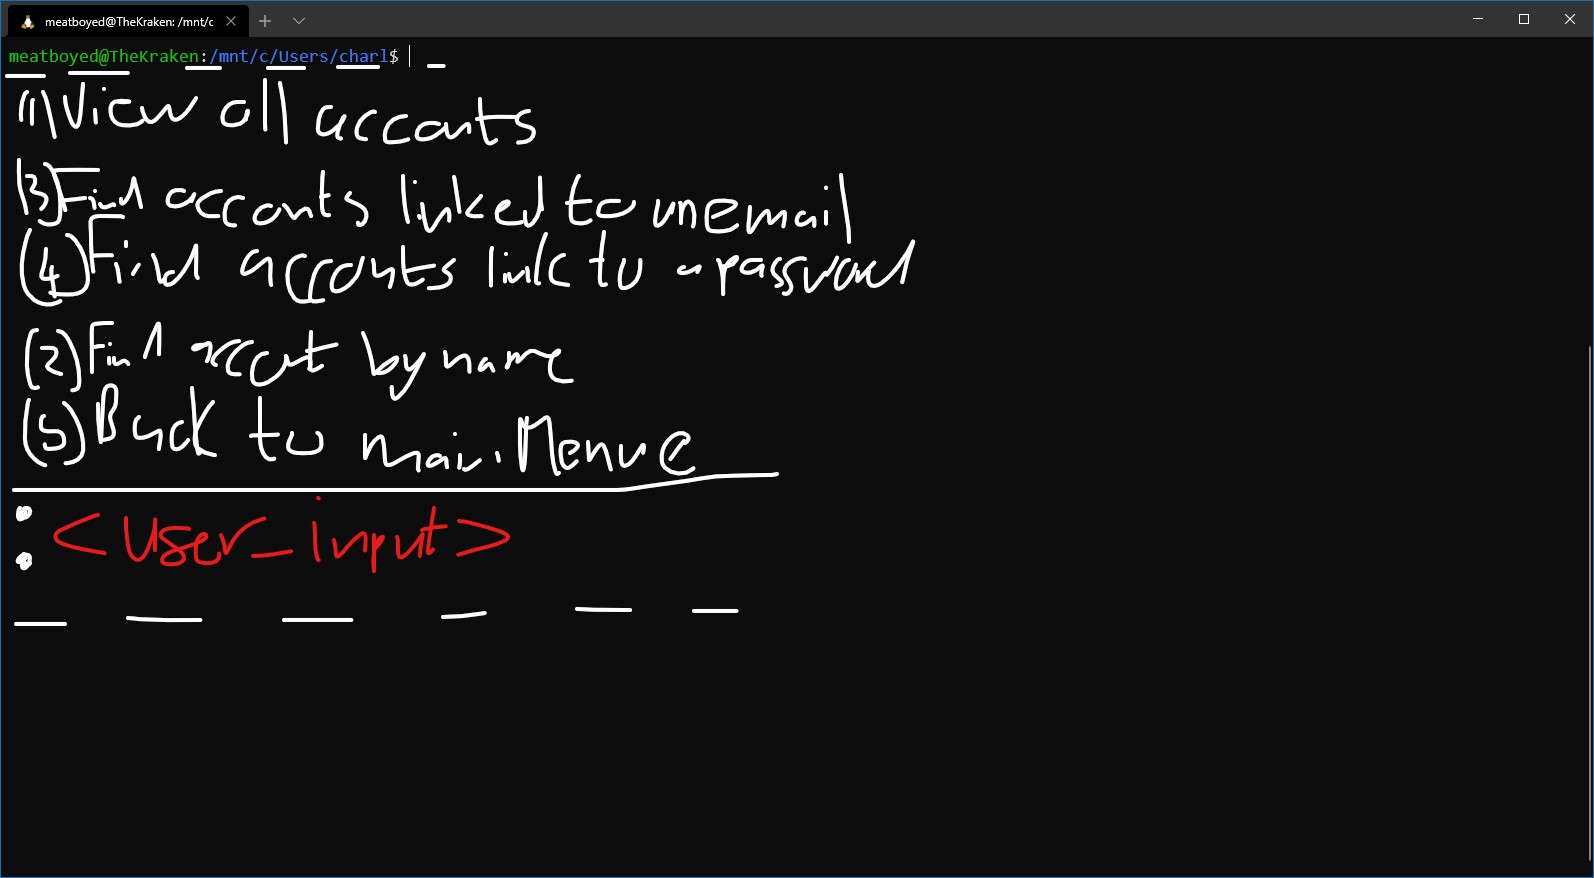 meatboyed@TheKraken: /mnt/c
meatboyed@TheKraken:/mnt/c/Users/charl$
(1)View all acconts
(3)Find acconts linked to an email
(4)Find acconts link to a password
(2)Find accout by name
(5)Back to main Menue
: <user_input>